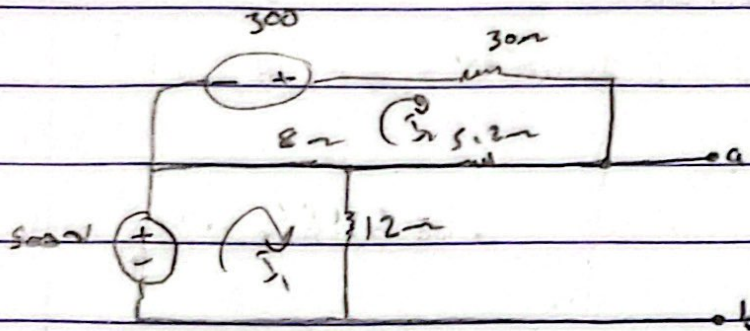 300
- +
30Ω
8Ω I₂ 5.2Ω
a
500V + 12Ω
-
I₁
b